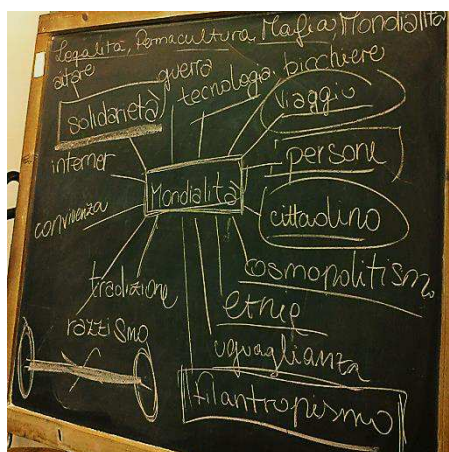 Legalità, Permacultura, Mafia, Mondialità
guerra
tecnologia bicchiere
solidarietà
viaggio
internet
persone
Mondialità
convivenza
cittadino
cosmopolitismo
tradizione
etnie
razzismo
uguaglianza
filantropismo